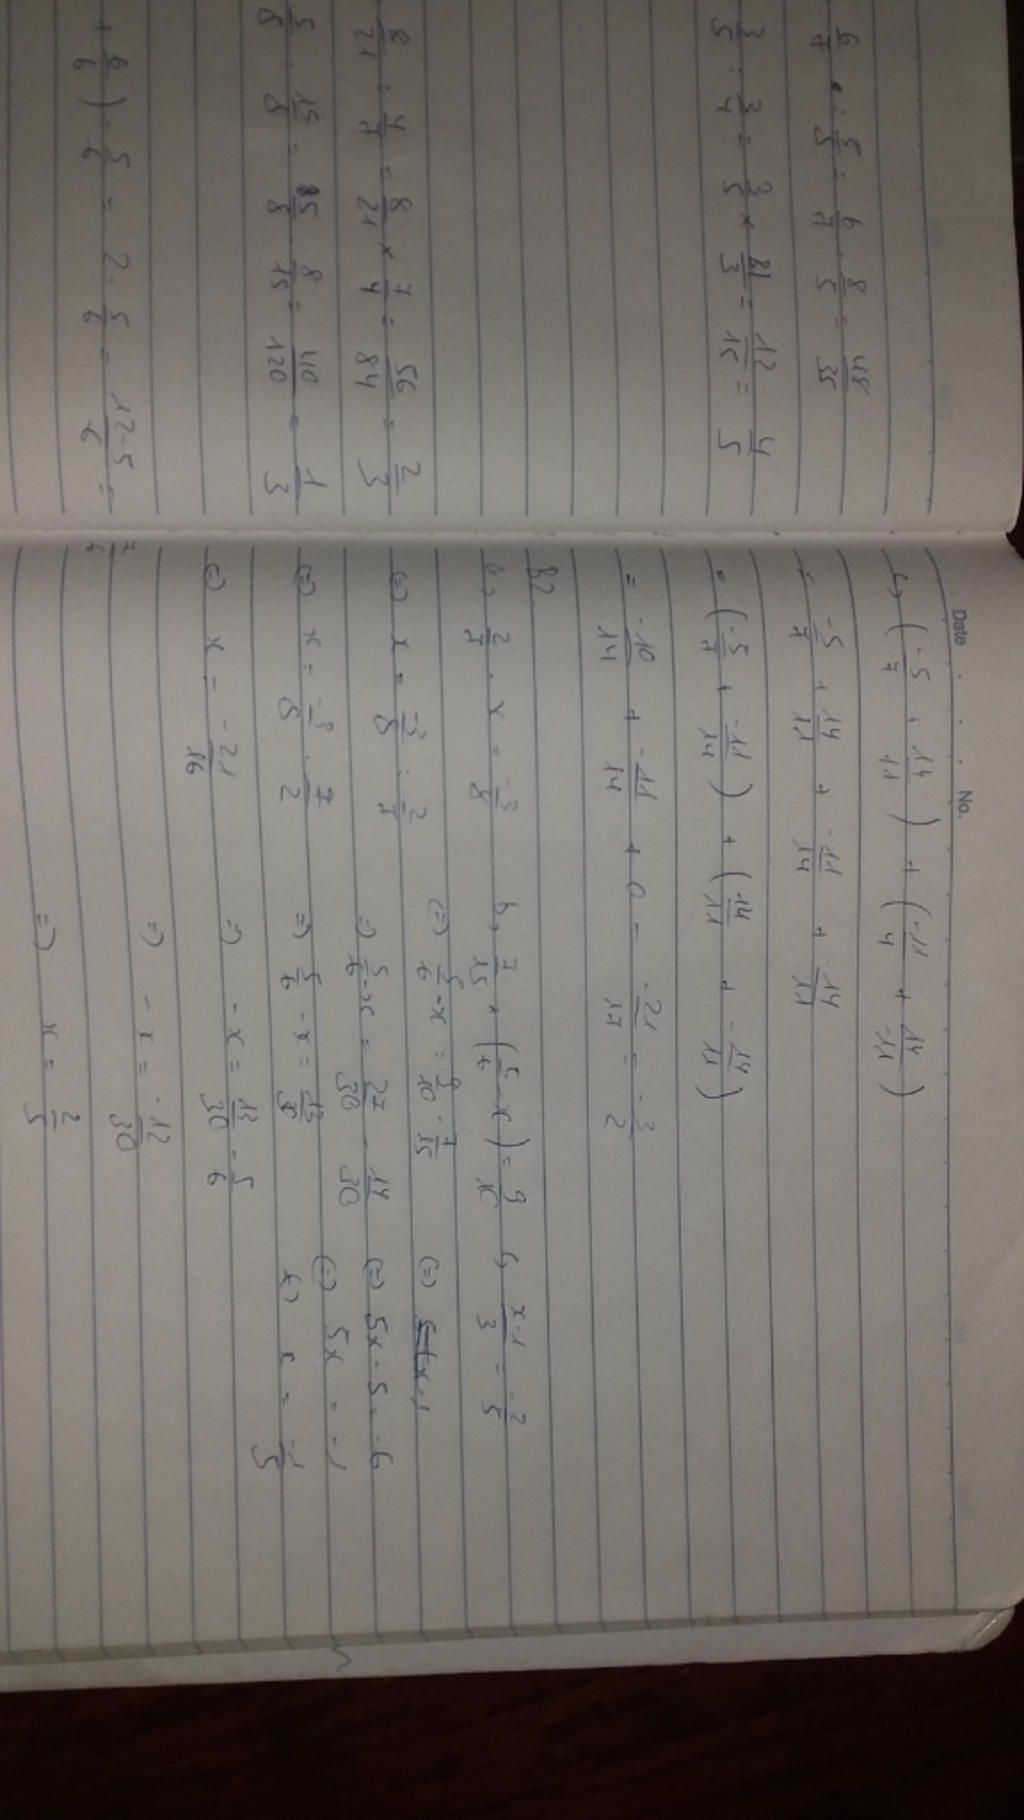 6/7 : 5/8 = 6/7 . 8/5 = 48/35
3/5 : 3/4 = 3/5 × 4/3 = 12/15 = 4/5
8/21 : 4/7 = 8/21 × 7/4 = 56/84 = 2/3
5/8 : 15/8 = 5/8 . 8/15 = 40/120 = 1/3
+ 6/6 ) . 5/6 = 2 . 5/6 = 12-5/6 =
7/6
Date . . No.
c, ( -5/7 + 14/11 ) + ( -11/4 + 14/-11 )
= -5/7 + 14/11 + -11/14 + -14/11
= ( -5/7 + -11/14 ) + ( 14/11 + -14/11 )
= -10/14 + -11/14 + 0 = -21/14 = -3/2
B2
a, 2/7 . x = -3/8
(=) x = -3/8 : 2/7
(=) x = -3/8 . 7/2
(=) x = -21/16
b, 7/15 + ( 5/6 - x ) = 9/10
(=) 5/6 - x = 9/10 - 7/15
=) 5/6 - x = 27/30 - 14/30
=) 5/6 - x = 13/30
=) - x = 13/30 - 5/6
=) - x = -12/30
=) x = 2/5
c, x-1/3 = -2/5
(=) 5x - 5 = -6
(=) 5x = -1
(=) x = -1/5